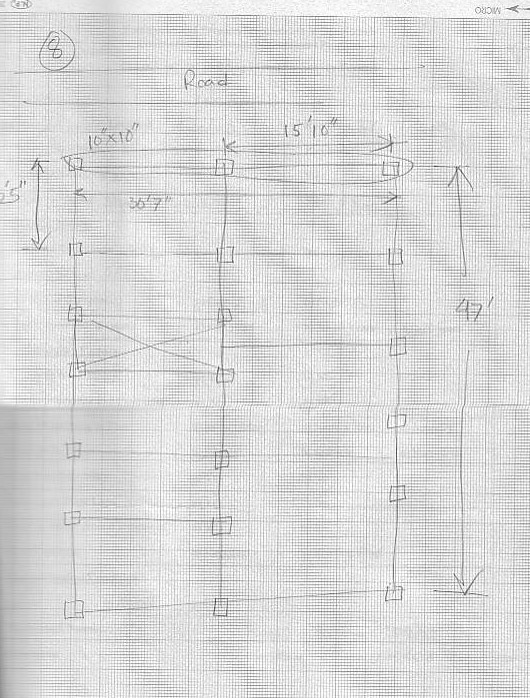 MICRO
8
Road
15'10"
10"x10"
30'7"
47'